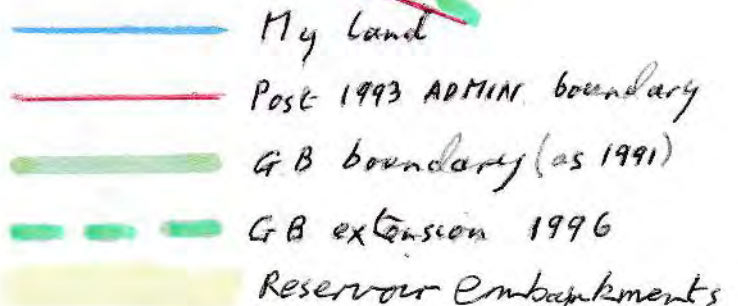 My land
Post 1993 ADMIN. boundary
GB boundary (as 1991)
GB extension 1996
Reservoir embankments